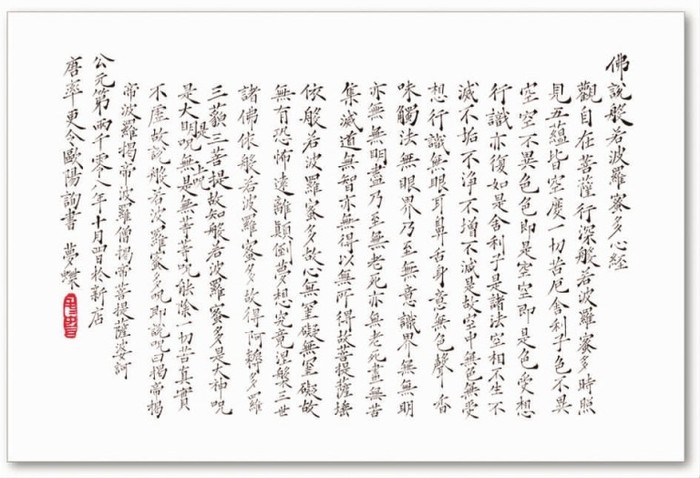 佛說般若波羅蜜多心經
觀自在菩薩行深般若波羅蜜多時照
見五蘊皆空度一切苦厄舍利子色不異
空空不異色色即是空空即是色受想
行識亦復如是舍利子是諸法空相不生不
滅不垢不淨不增不減是故空中無色無受
想行識無眼耳鼻舌身意無色聲香
味觸法無眼界乃至無意識界無無明
亦無無明盡乃至無老死亦無老死盡無苦
集滅道無智亦無得以無所得故菩提薩埵
依般若波羅蜜多故心無罣礙無罣礙故
無有恐怖遠離顛倒夢想究竟涅槃三世
諸佛依般若波羅蜜多故得阿耨多羅
三藐三菩提故知般若波羅蜜多是大神咒
是大明咒是無上咒是無等等咒能除一切苦真實
不虛故說般若波羅蜜多咒即說咒曰揭帝揭
帝波羅揭帝波羅僧揭帝菩提薩婆訶
公元第兩千零八年十月四日於新店
唐率更令歐陽詢書 夢